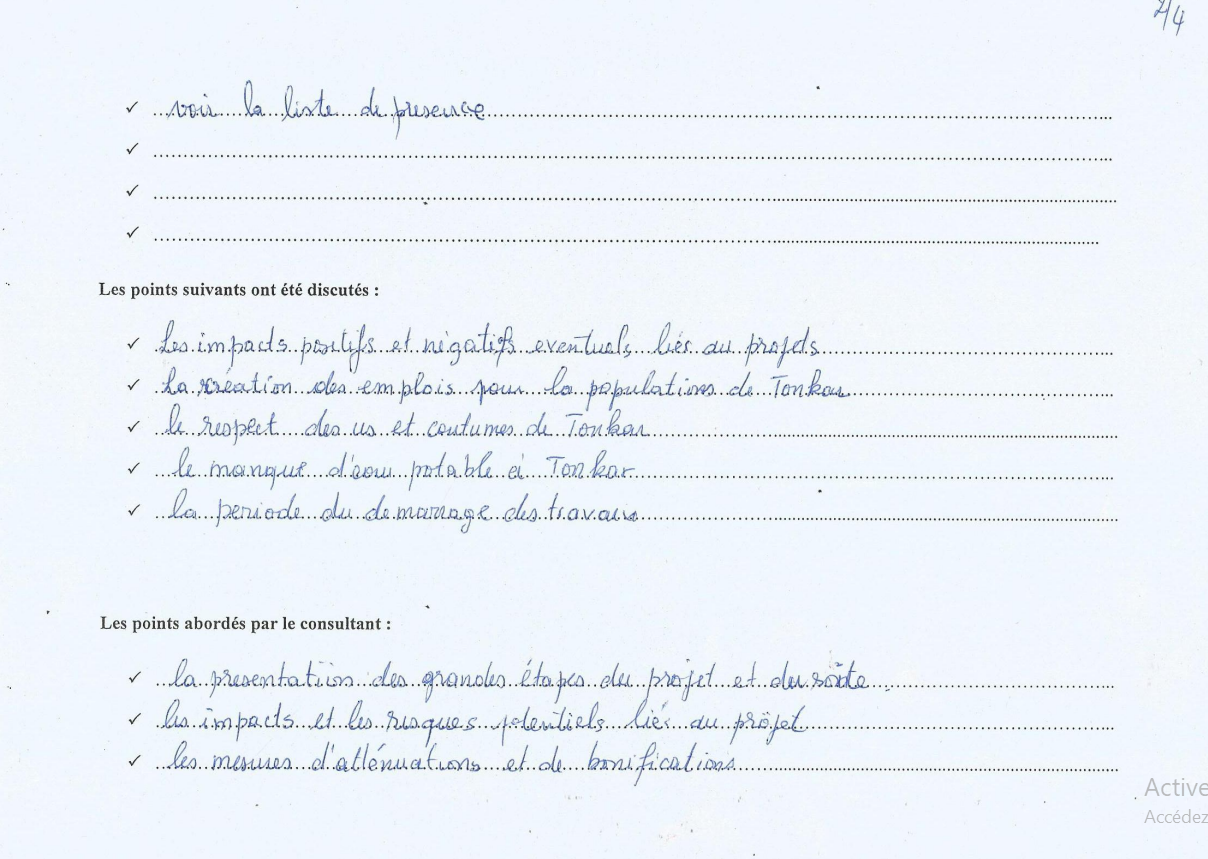 2/4
✓ voir la liste de presence
✓
✓
✓
Les points suivants ont été discutés :
✓ Les impacts positifs et négatifs eventuels liés au projets
✓ La création des emplois pour la populations de Tonkar
✓ le respect des us et coutumes de Tonkar
✓ le manque d'eau potable à Tonkar
✓ la periode du demarrage des travaux
Les points abordés par le consultant :
✓ la presentation des grandes étapes du projet et du
✓ les impacts et les risques potentiels liés au projet
✓ les mesures d'atténuations et de bonifications
Active
Accédez